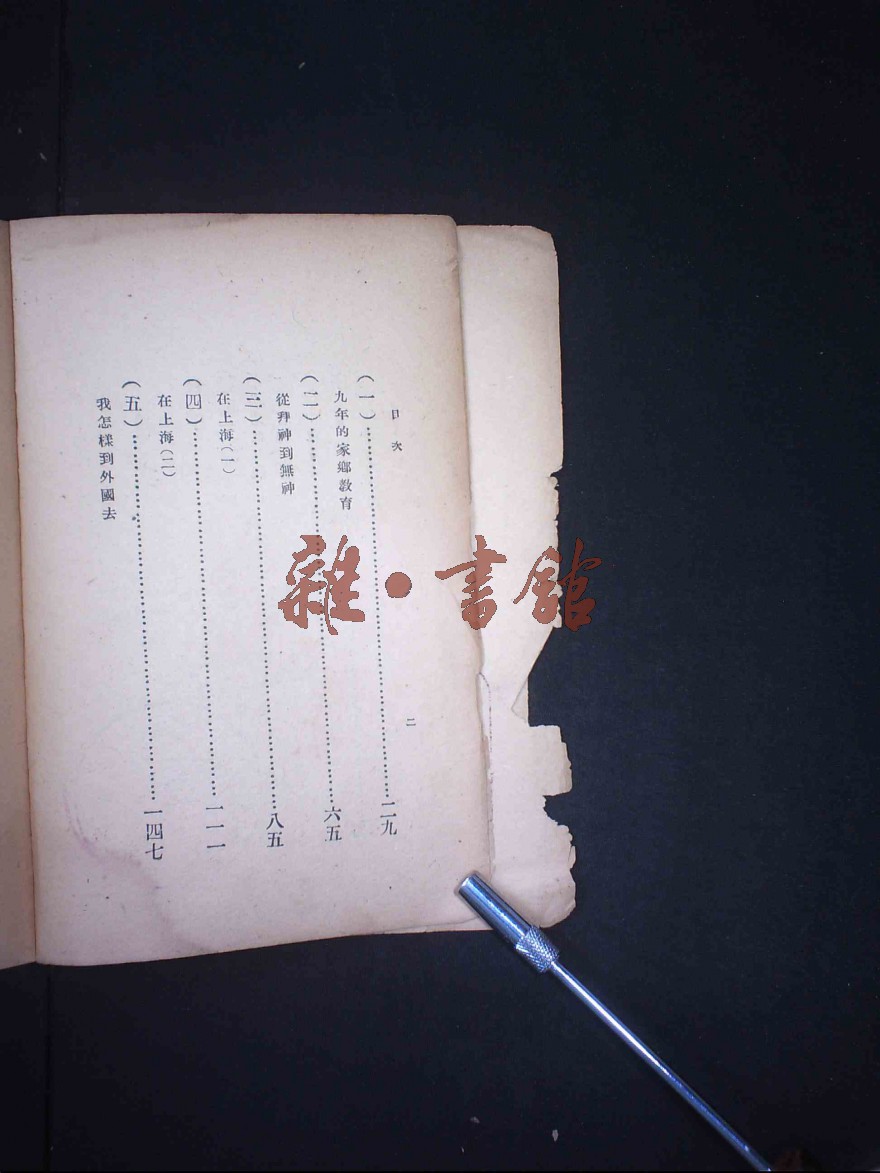 目次
二
(一)……二九
九年的家鄉教育
(二)……六五
從拜神到無神
(三)……八五
在上海(一)
(四)……一一一
在上海(二)
(五)……一四七
我怎樣到外國去
雜·書館